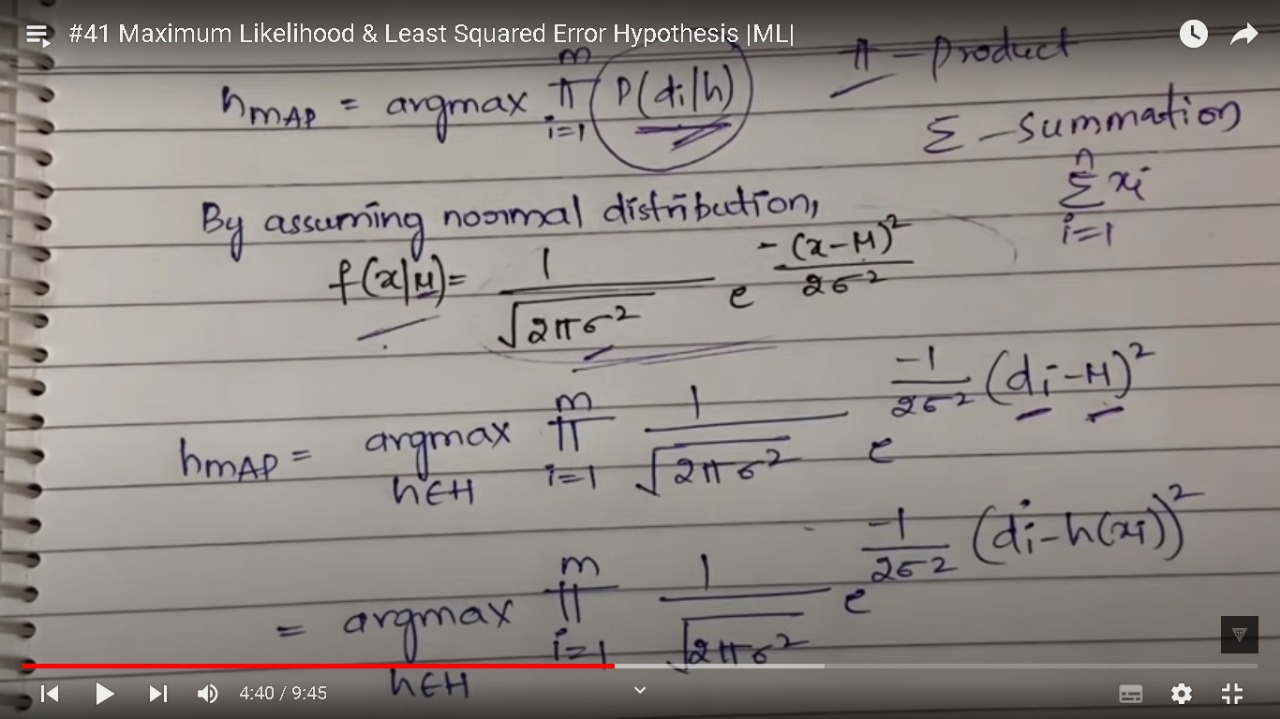 #41 Maximum Likelihood & Least Squared Error Hypothesis |ML|
hMAP = argmax ∏ i=1 m P(di|h)
π - product
Σ - summation
n Σ i=1 xi
By assuming normal distribution,
f(x|μ) = 1/√2πσ² e -(x-μ)²/2σ²
hMAP = argmax h∈H m ∏ i=1 1/√2πσ² e -1/2σ² (di-μ)²
= argmax h∈H m ∏ i=1 1/√2πσ² e -1/2σ² (di-h(xi))²
4:40 / 9:45